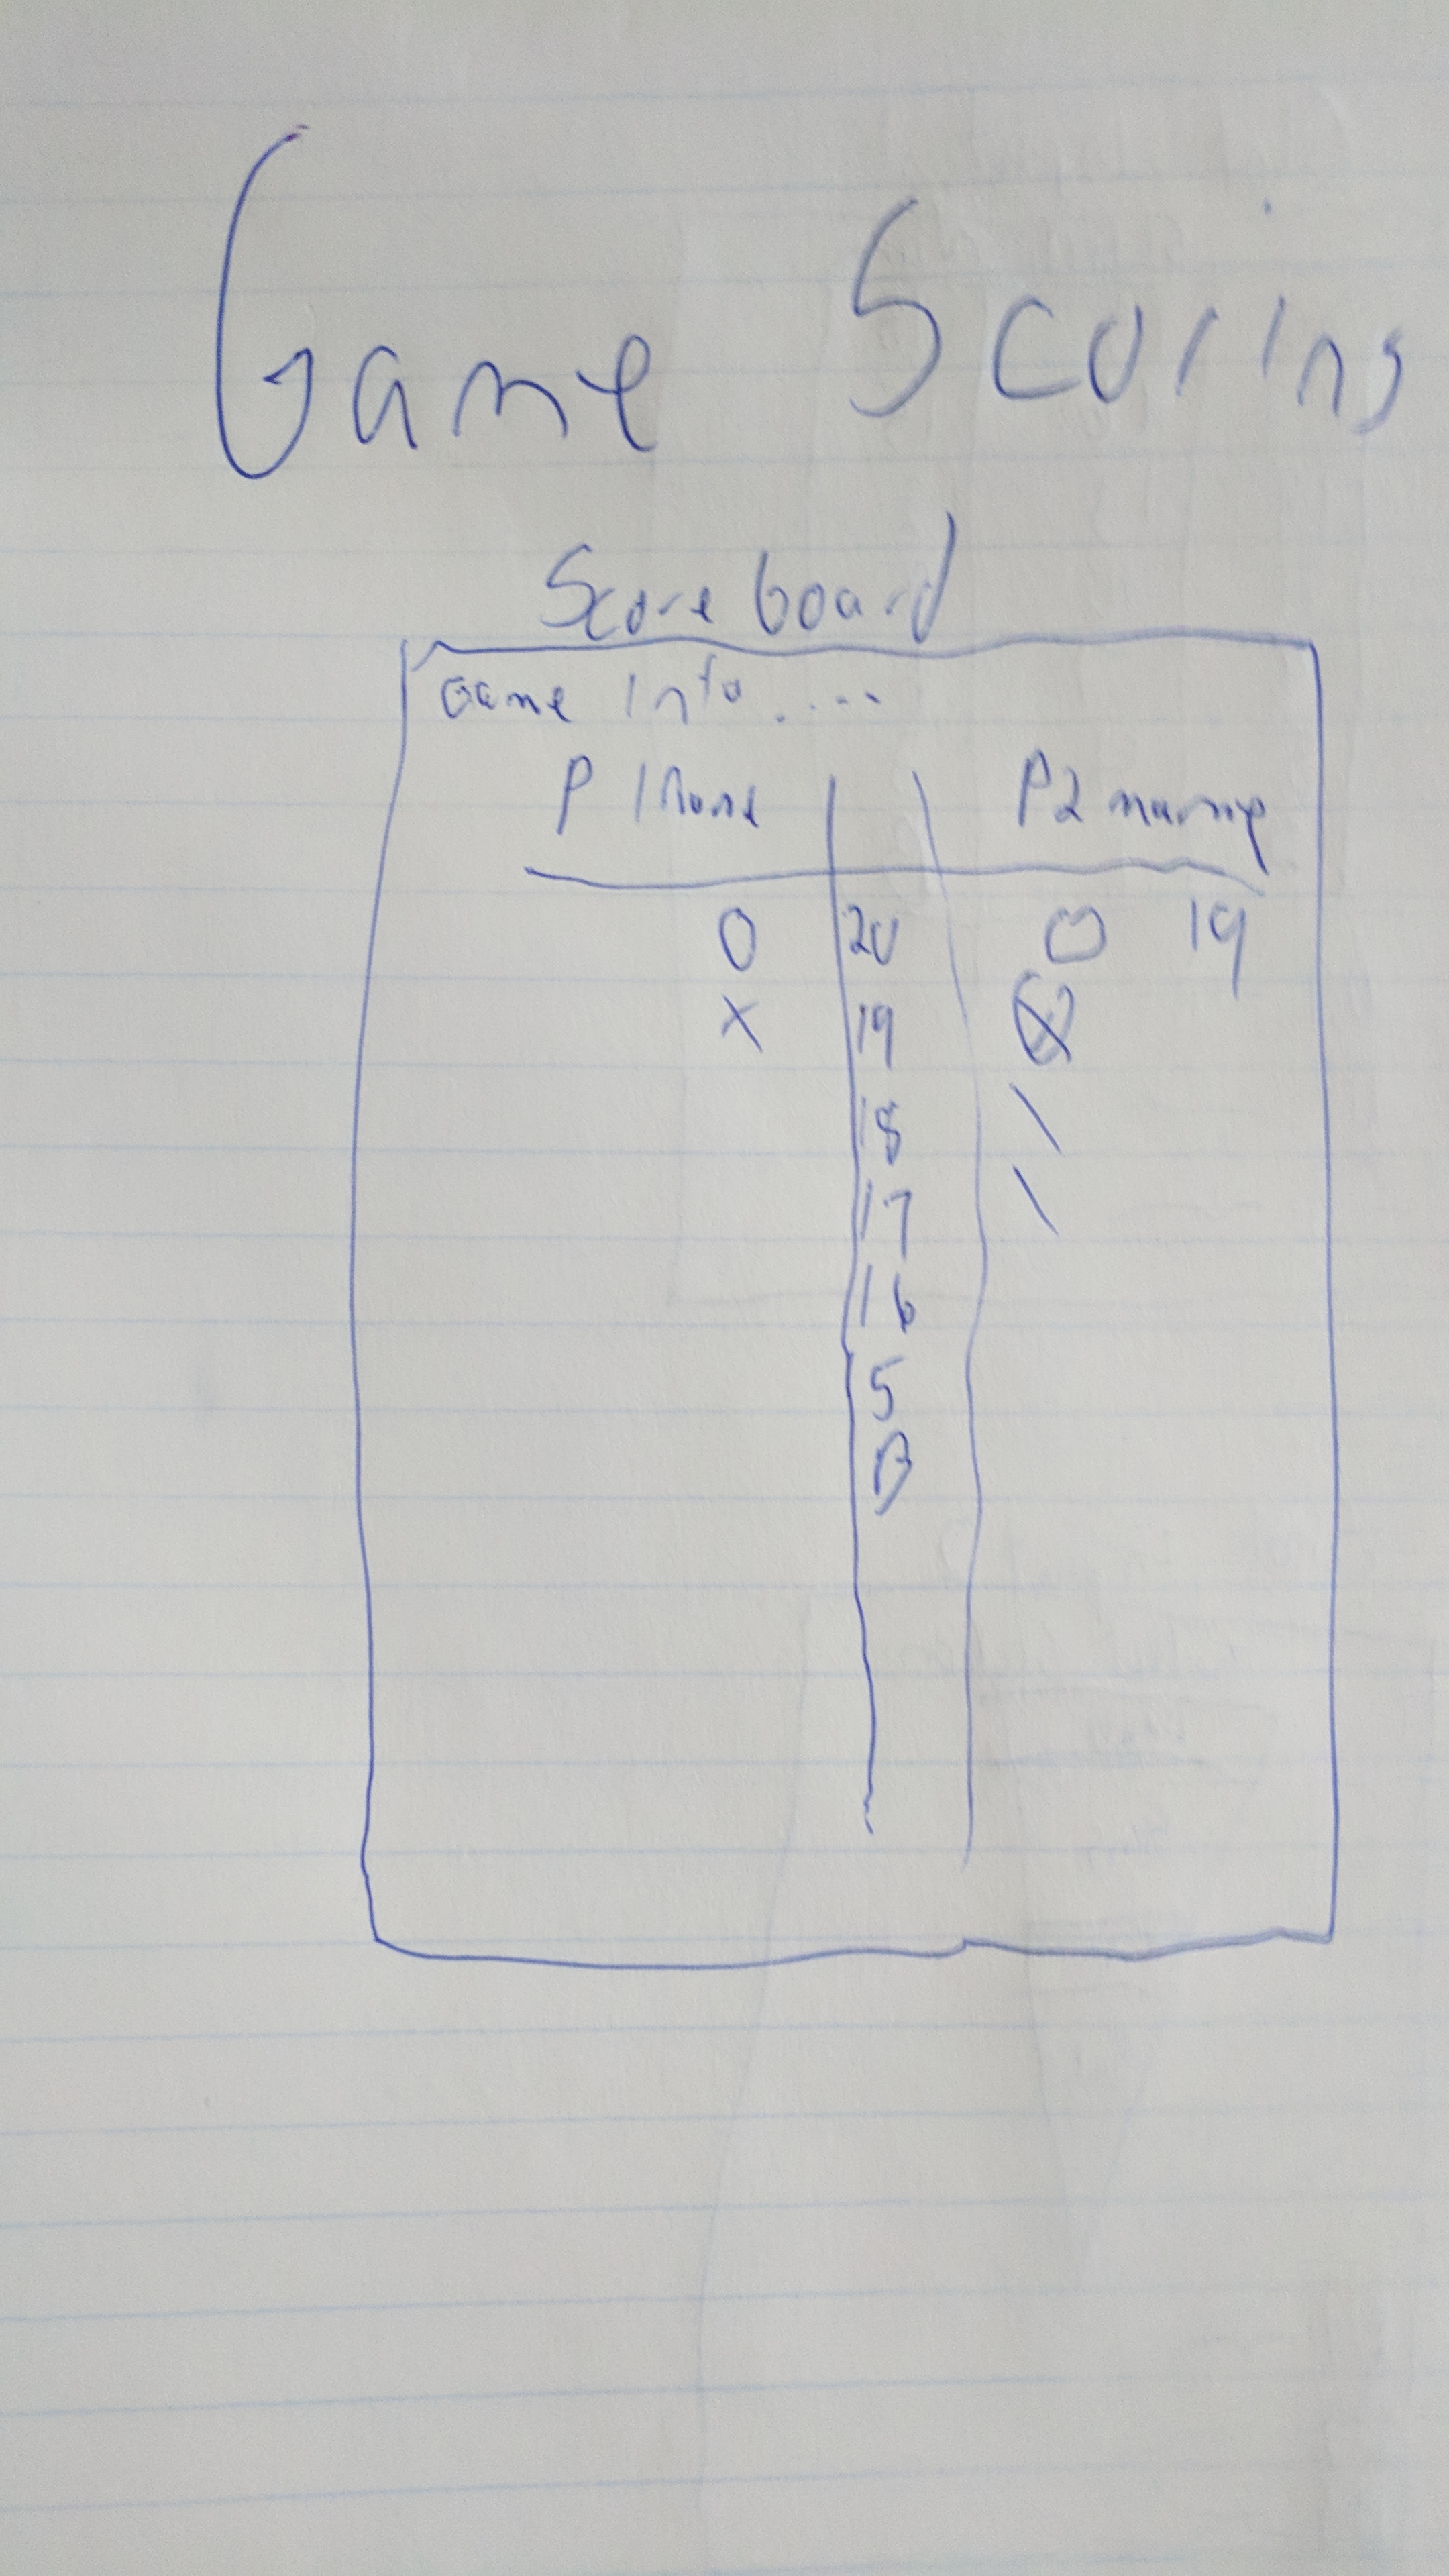 Game Scoring
Scoreboard
Game Info....
P1 Name P2 name
0 20 0 19
X 19 ⊗
18 \
17 \
16
5
B